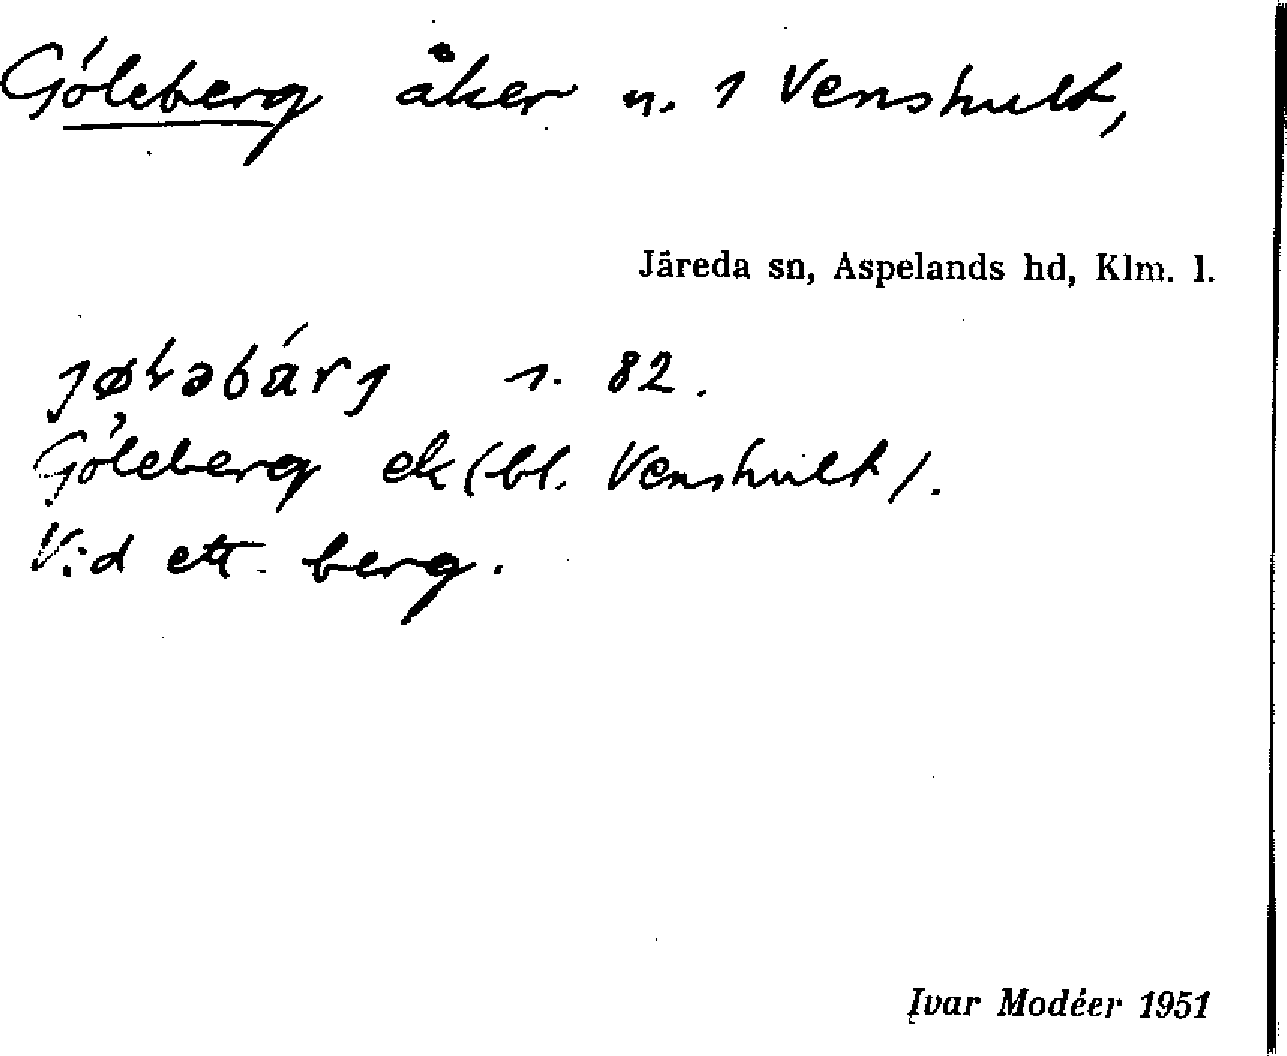 Göleberg åker n. 1 Venshult,
Järeda sn, Aspelands hd, Klm. l.
s. 82.
Göleberg ek (bl. Venshult).
Vid ett berg.
Ivar Modéer 1951